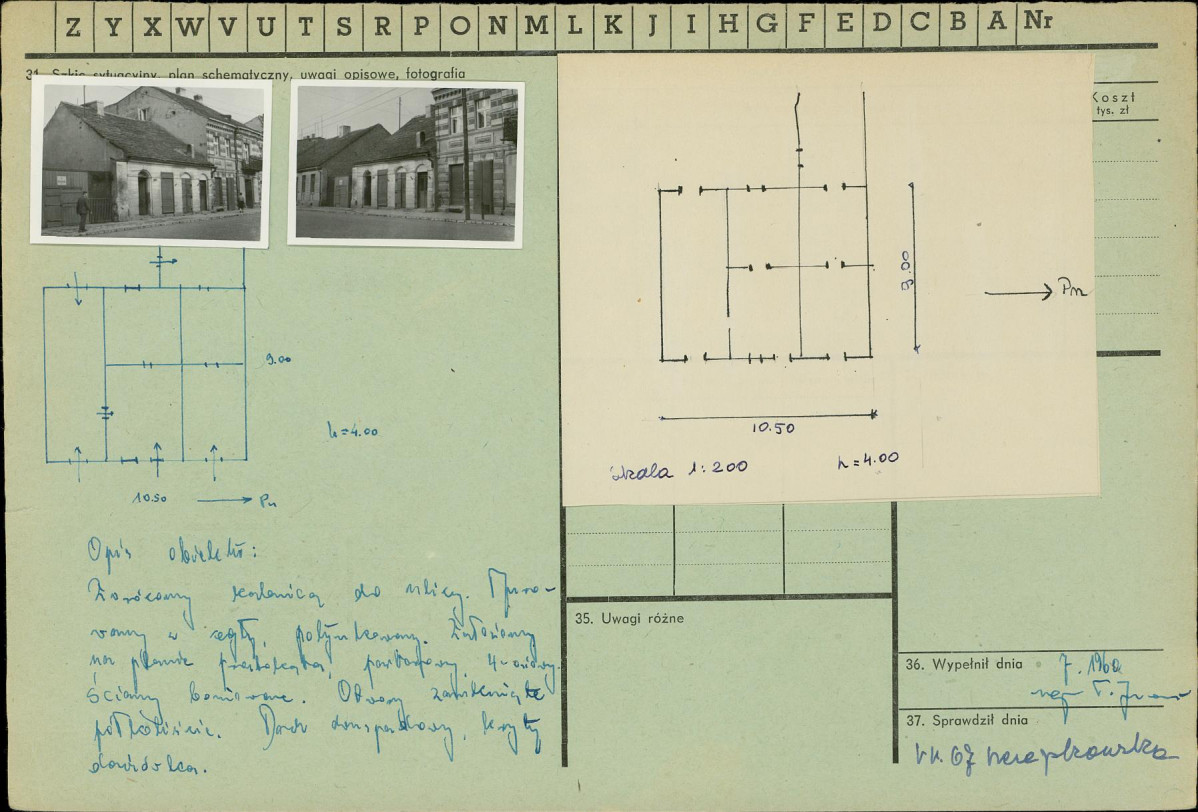 Z Y X W V U T S R P O N M L K J I H G F E D C B A Nr
31. Szkic sytuacyjny, plan schematyczny, uwagi opisowe, fotografia
Koszt
tys. zł
9.00
h=4.00
10.50
Pn
9.00
Pn
10.50
Skala 1:200
h=4.00
Opis obiektu:
Zwrócony kalenicą do ulicy. Muro-
wany z cegły, potynkowany. Założony
na planie prostokąta, parterowy, 4-osiowy.
Ściany boniowane. Otwory zamknięte
półkoliście. Dach dwuspadowy, kryty
dachówką.
35. Uwagi różne
36. Wypełnił dnia
7. 1960
37. Sprawdził dnia